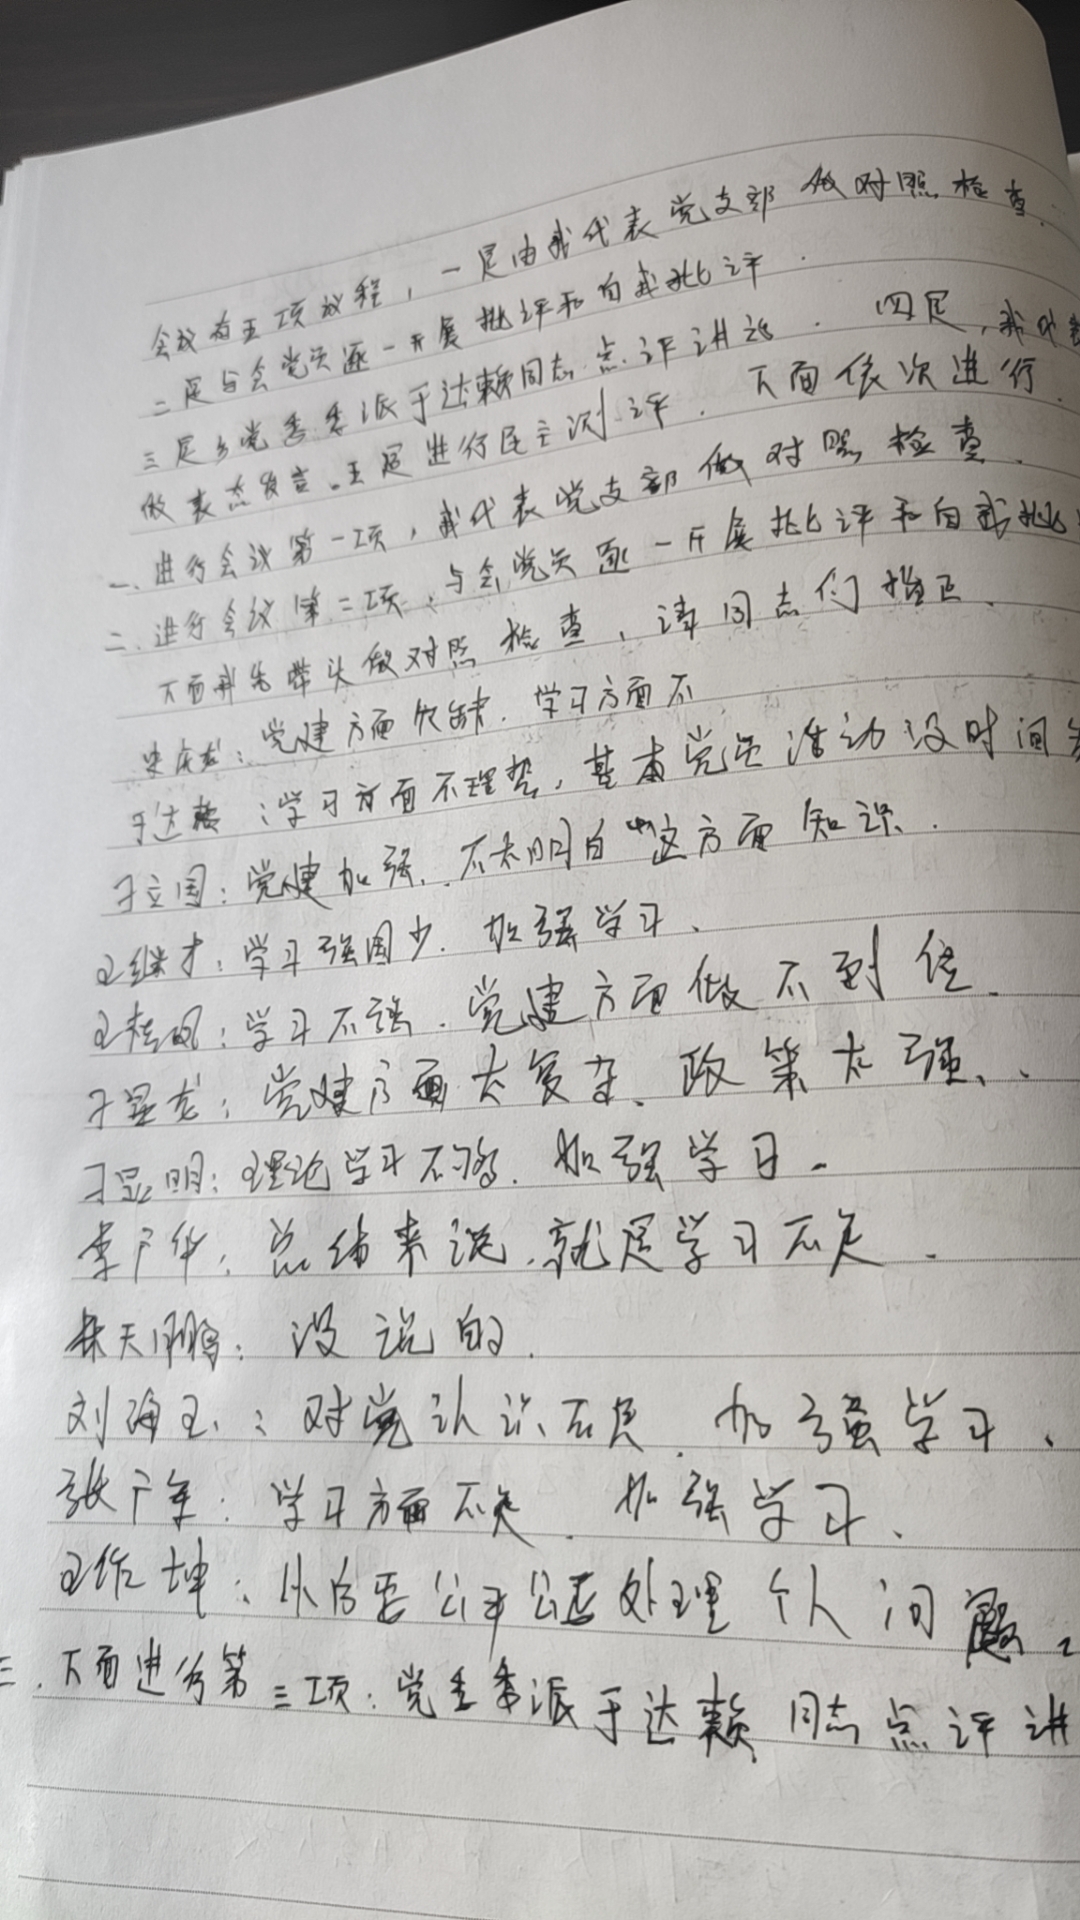 会议有五项议程，一是由我代表党支部做对照检查.
二是与会党员逐一开展批评和自我批评.
三是乡党委委派于达赖同志点评讲话. 四是，我
做表态发言.五是进行民主测评. 下面依次进行.
一、进行会议第一项，我代表党支部做对照检查.
二.进行会议第二项：与会党员逐一开展批评和自我批
下面我先带头做对照检查，请同志们指正.
党建方面欠缺. 学习方面不
于达赖：学习方面不理想，基本党员活动没时间
于立国：党建加强. 不太明白“这方面知识.
王继才：学习强国少. 加强学习.
王桂凤：学习不强. 党建方面做不到位.
于显龙：党建方面太复杂、政策太强.
于显明：理论学习不够. 加强学习.
李广华：总结来说.就是学习不足.
天鹏：没说的.
刘海玉：对党认识不足. 加强学习.
张广军：学习方面不足. 加强学习.
王作坤：从后要公平公正处理个人问题.
三.下面进行第三项：党委委派于达赖同志点评讲